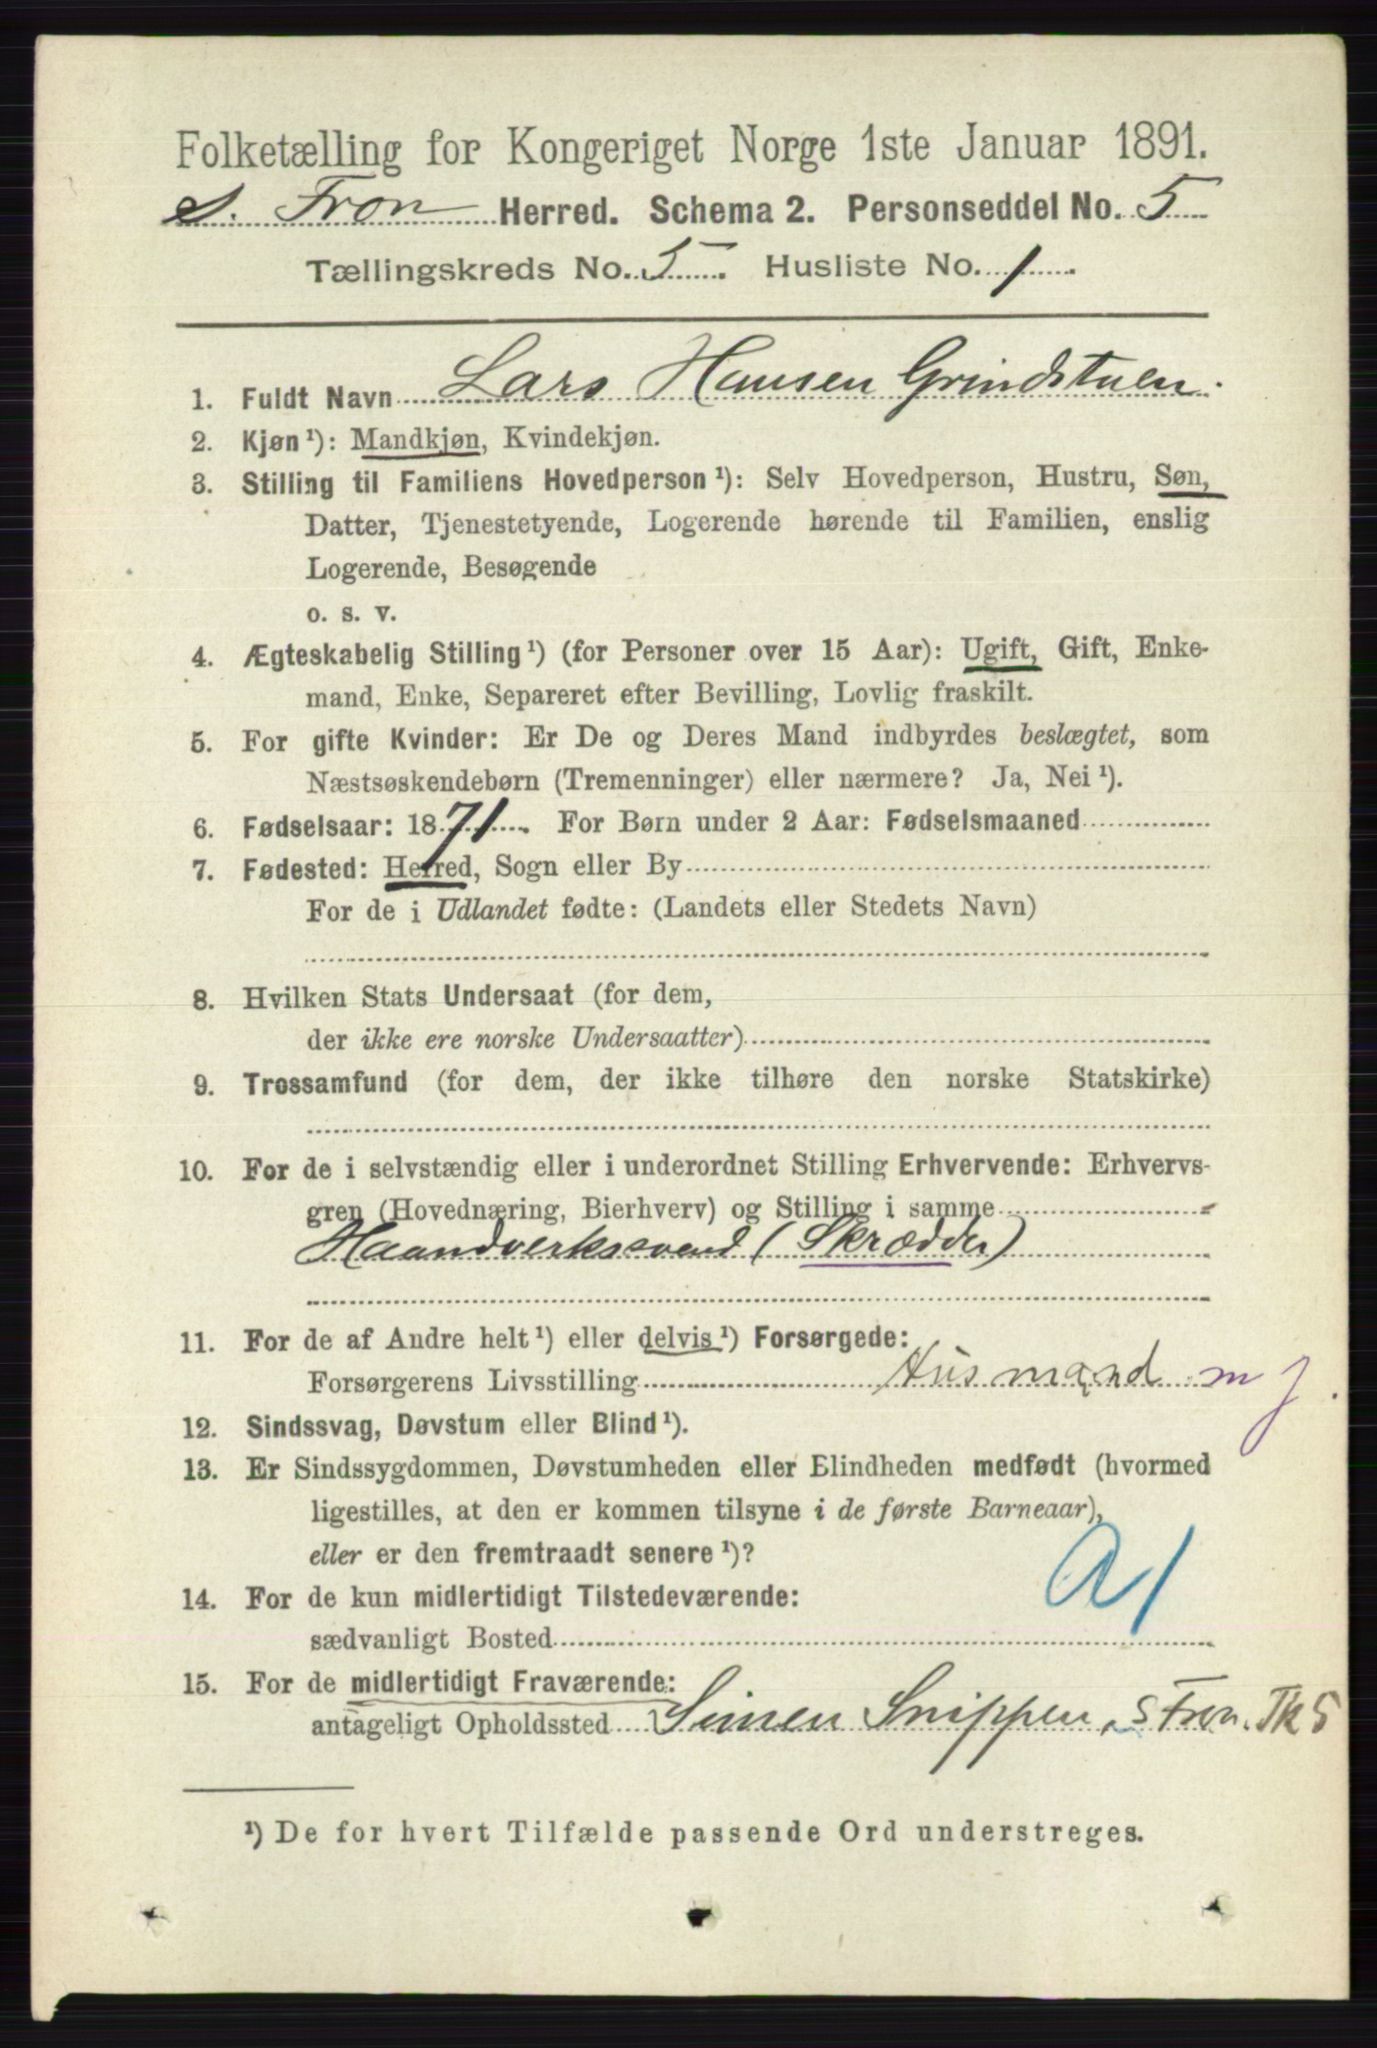 Folketælling for Kongeriget Norge 1ste Januar 1891.
S. Fron Herred. Schema 2. Personseddel No. 5
Tællingskreds No. 5. Husliste No. 1.
1. Fuldt Navn Lars Hansen Grindstuen.
2. Kjøn ¹): Mandkjøn, Kvindekjøn.
3. Stilling til Familiens Hovedperson ¹): Selv Hovedperson, Hustru, Søn,
Datter, Tjenestetyende, Logerende hørende til Familien, enslig
Logerende, Besøgende
o. s. v.
4. Ægteskabelig Stilling ¹) (for Personer over 15 Aar): Ugift, Gift, Enke-
mand, Enke, Separeret efter Bevilling, Lovlig fraskilt.
5. For gifte Kvinder: Er De og Deres Mand indbyrdes beslægtet, som
Næstsøskendebørn (Tremenninger) eller nærmere? Ja, Nei ¹).
6. Fødselsaar: 1871. For Børn under 2 Aar: Fødselsmaaned
7. Fødested: Herred, Sogn eller By
For de i Udlandet fødte: (Landets eller Stedets Navn)
8. Hvilken Stats Undersaat (for dem,
der ikke ere norske Undersaatter)
9. Trossamfund (for dem, der ikke tilhøre den norske Statskirke)
10. For de i selvstændig eller i underordnet Stilling Erhvervende: Erhvervs-
gren (Hovednæring, Bierhverv) og Stilling i samme
Haandverkssvend (Skrædder)
11. For de af Andre helt ¹) eller delvis ¹) Forsørgede:
Forsørgerens Livsstilling Husmand m j.
12. Sindssvag, Døvstum eller Blind ¹).
13. Er Sindssygdommen, Døvstumheden eller Blindheden medfødt (hvormed
ligestilles, at den er kommen tilsyne i de første Barneaar),
eller er den fremtraadt senere ¹)?
a1
14. For de kun midlertidigt Tilstedeværende:
sædvanligt Bosted
15. For de midlertidigt Fraværende:
antageligt Opholdssted Simen Snippen, S Fron. Tk 5
¹) De for hvert Tilfælde passende Ord understreges.